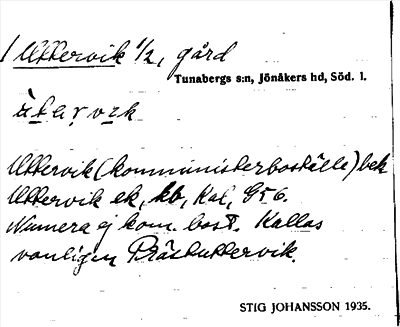 Uttervik 1/2, gård
Tunabergs s:n, Jönåkers hd, Söd. l.
Uttervik (komministerboställe) bek
Uttervik ek, kb, kal, G56.
Numera ej kom. bost. Kallas
vanligen Prästuttervik.
STIG JOHANSSON 1935.